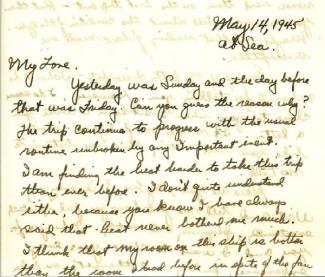 May 14, 1945
At Sea.
My Love.
Yesterday was Sunday and the day before
that was Friday. Can you guess the reason why?
The trip continues to progress with the usual
routine unbroken by any important event.
I am finding the heat harder to take this trip
than ever before. I don't quite understand
either, because you know I have always
said that heat never bothered me much.
I think that my room on this ship is hotter
than the room I had before in spite of the fan